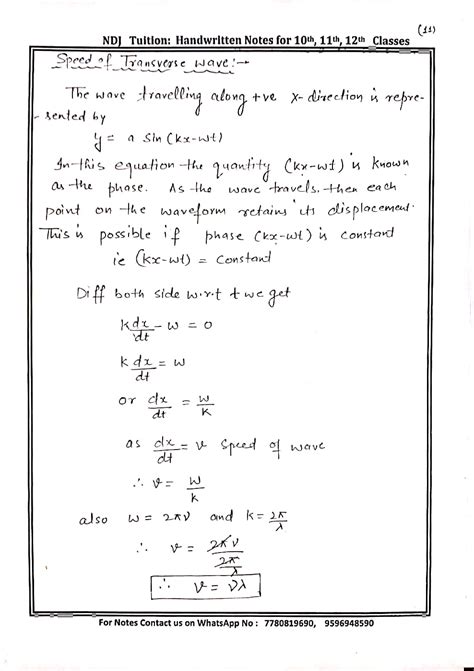 (11)
NDJ Tuition: Handwritten Notes for 10th, 11th, 12th Classes
Speed of Transverse wave:→
The wave travelling along +ve x-direction is repre-
-sented by
y = a sin (kx-wt)
In this equation the quantity (kx-wt) is known
as the phase. As the wave travels, then each
point on the waveform retains its displacement.
This is possible if phase (kx-wt) is constant
ie (kx-wt) = constant
Diff both side w.r.t t we get
k dx/dt - w = 0
k dx/dt = w
or dx/dt = w/k
as dx/dt = v speed of wave
∴ v = w/k
also w = 2πν and k = 2π/λ
∴ v = 2πν / 2π/λ
∴ v = νλ
For Notes Contact us on WhatsApp No : 7780819690, 9596948590